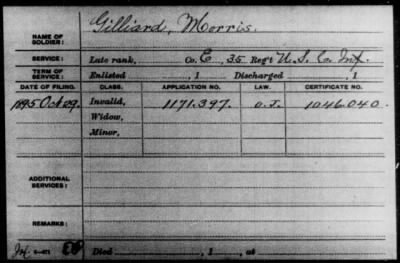 NAME OF SOLDIER: Gilliard, Morris.
SERVICE: Late rank, Co. E, 35 Reg't U.S.C. Inf.
TERM OF SERVICE: Enlisted , 1 Discharged , 1
DATE OF FILING. CLASS. APPLICATION NO. LAW. CERTIFICATE NO.
1895 Oct 29. Invalid, 1171.397. 1046.040.
Widow,
Minor,
ADDITIONAL SERVICES:
REMARKS:
Died , 1 , at